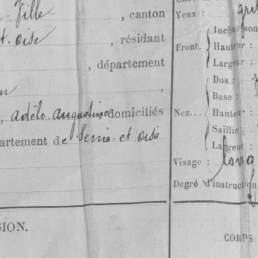 Ville , canton
et. oise , résidant
, département
, adèle. augustine domiciliés
partement de Seine et oise
GION.
Yeux : gris
Inclinaison
Front. Hauteur :
Largeur :
Dos :
Base :
Nez... Hauteur :
Saillie :
Largeur :
Visage : long
Degré d'instruction
CORPS